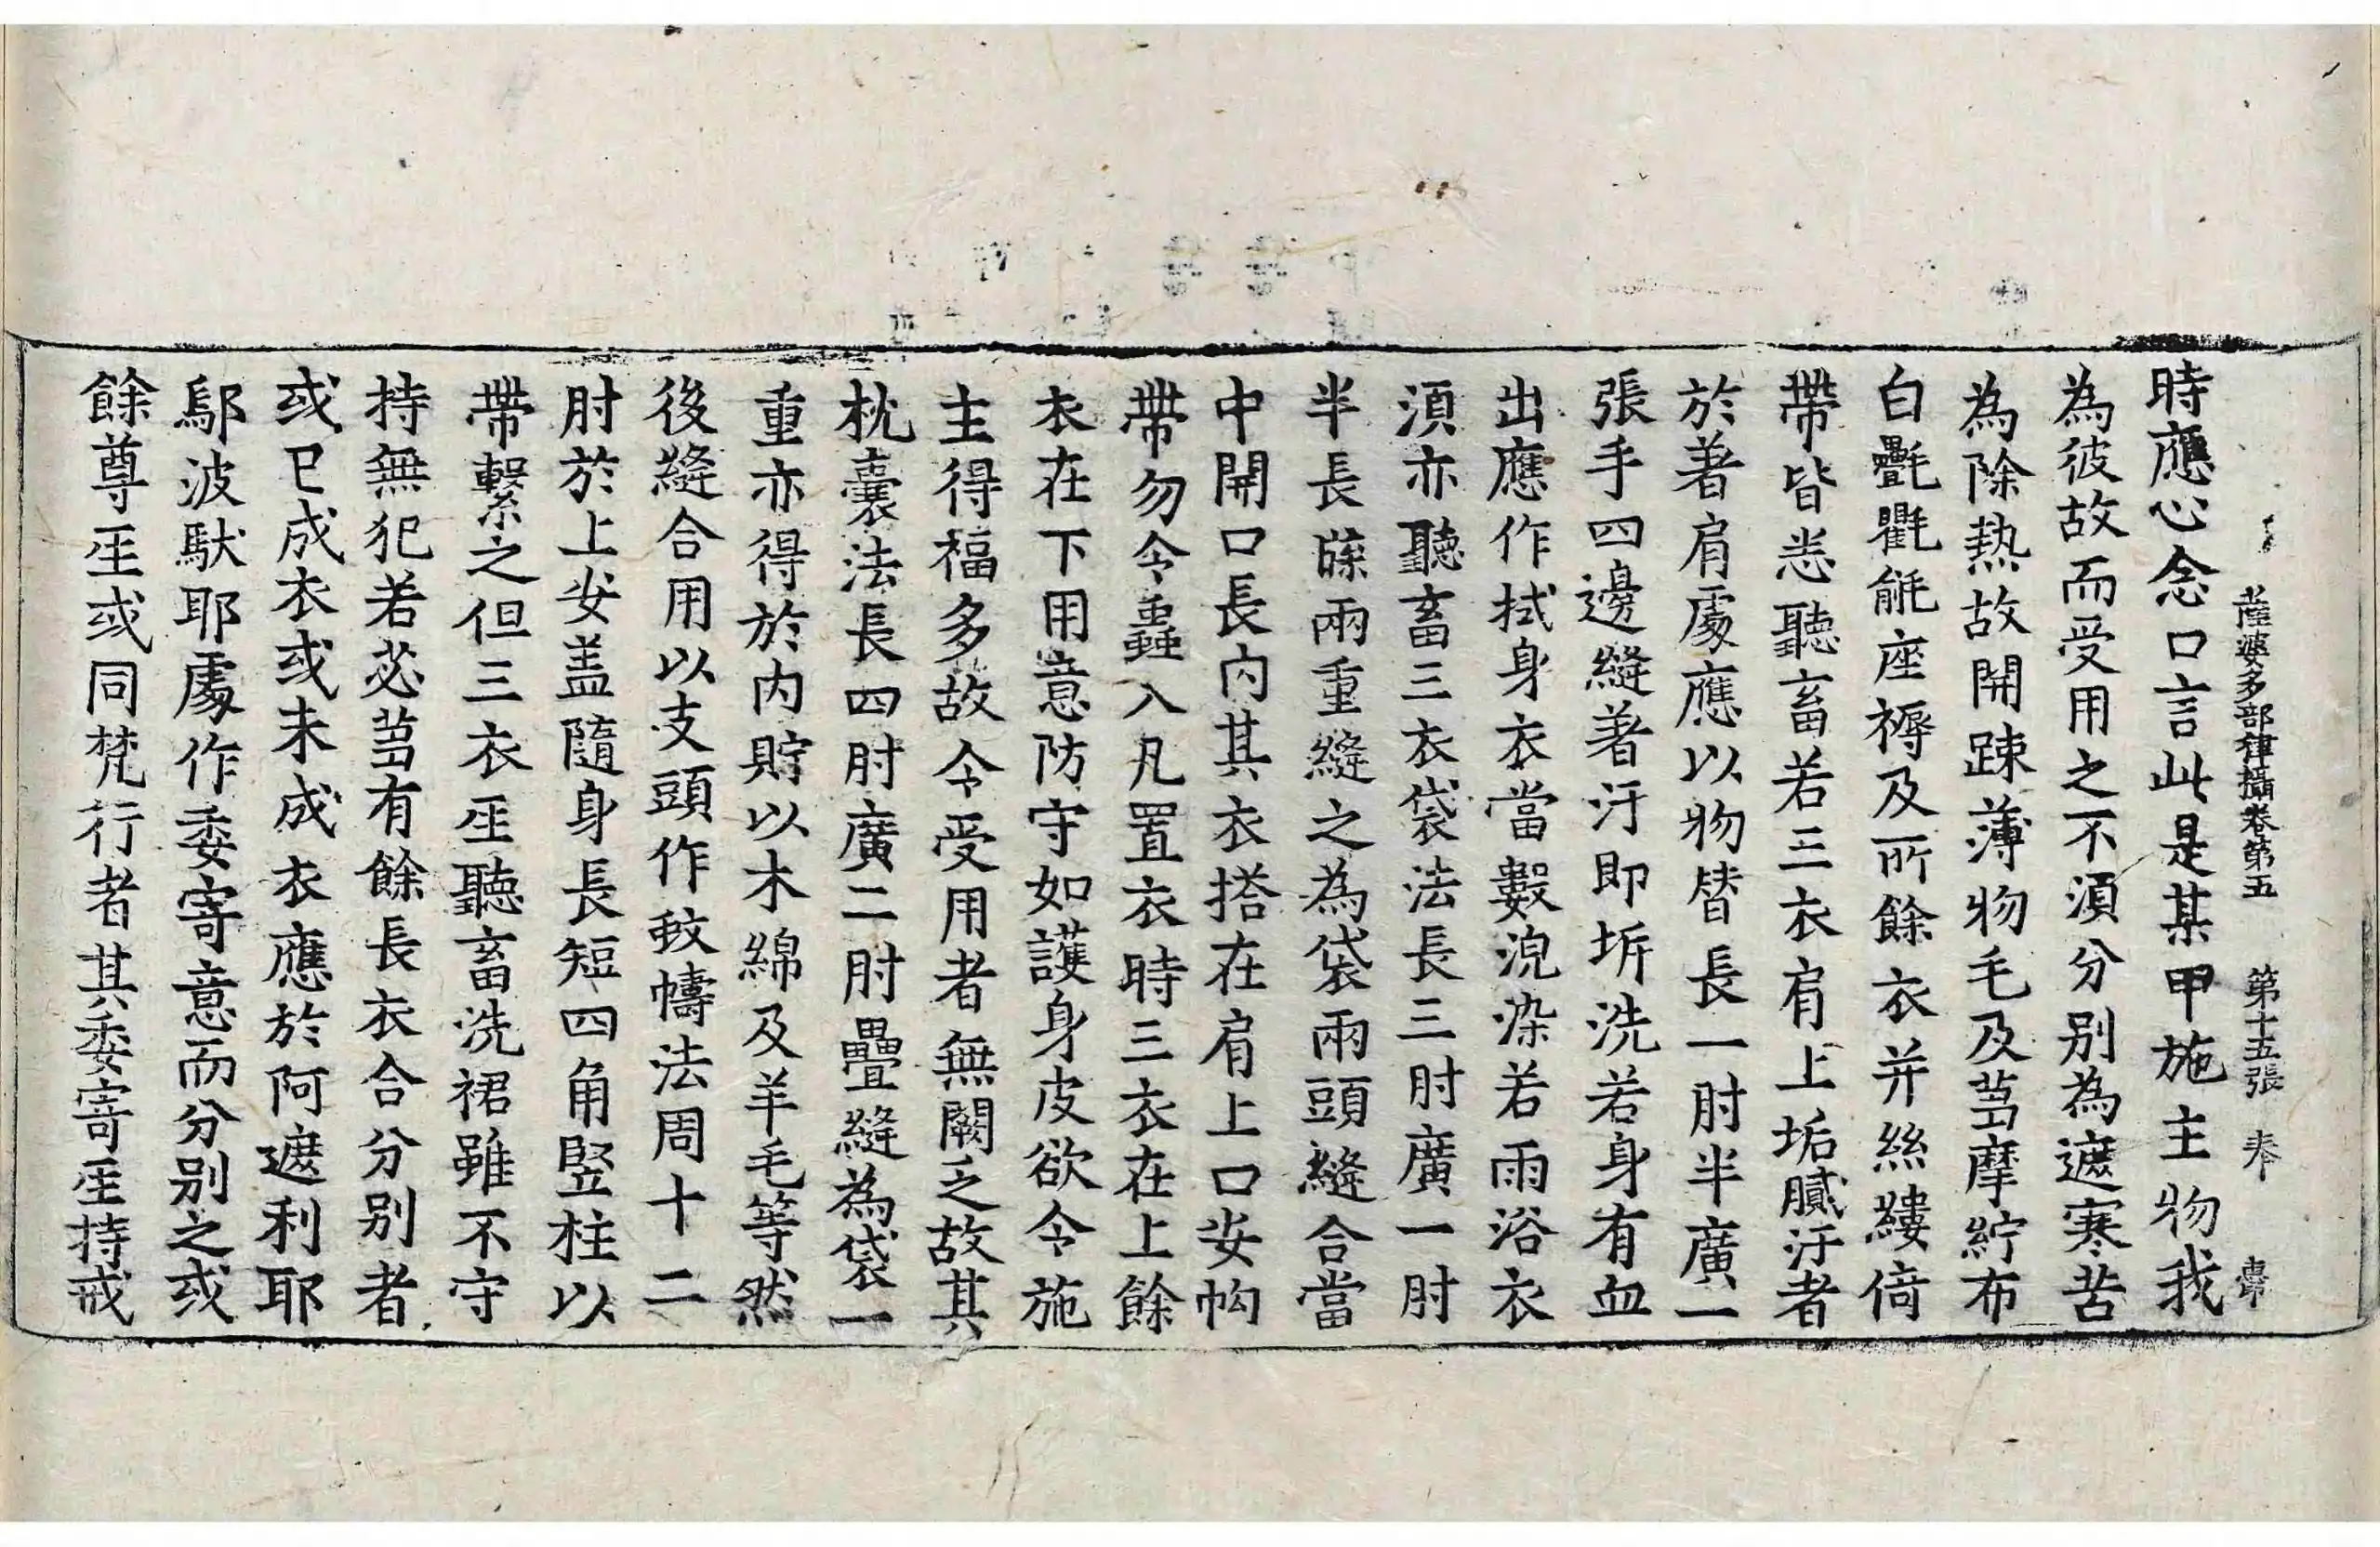 薩婆多部律攝卷第五 第十五張
時應心念口言此是某甲施主物我
為彼故而受用之不湏分别為遮寒苦
為除熱故開踈薄物毛及芻摩紵布
白㲲氍毹座褥及所餘衣并絲縷倚
帶皆悉聽畜若三衣肩上垢膩汙者
於著肩䖏應以物替長一肘半廣一
張手四邊縫著汙即坼洗若身有血
出應作拭身衣當數浣染若雨浴衣
湏亦聽畜三衣袋法長三肘廣一肘
半長牒兩重縫之為袋兩頭縫合當
中開口長内其衣搭在肩上口安㡓
帶勿令蟲入凡置衣時三衣在上餘
衣在下用意防守如護身皮欲令施
主得福多故令受用者無闕乏故其
枕囊法長四肘廣二肘疊縫為袋一
重亦得於内貯以木綿及羊毛等然
後縫合用以支頭作蚊幬法周十二
肘於上安盖隨身長短四角竪柱以
帶繫之但三衣𤯔聽畜洗裙雖不守
持無犯若苾芻有餘長衣合分别者
或已成衣或未成衣應於阿遮利耶
鄔波馱耶䖏作委寄意而分别之或
餘尊𤯔或同梵行者其委寄𤯔持戒